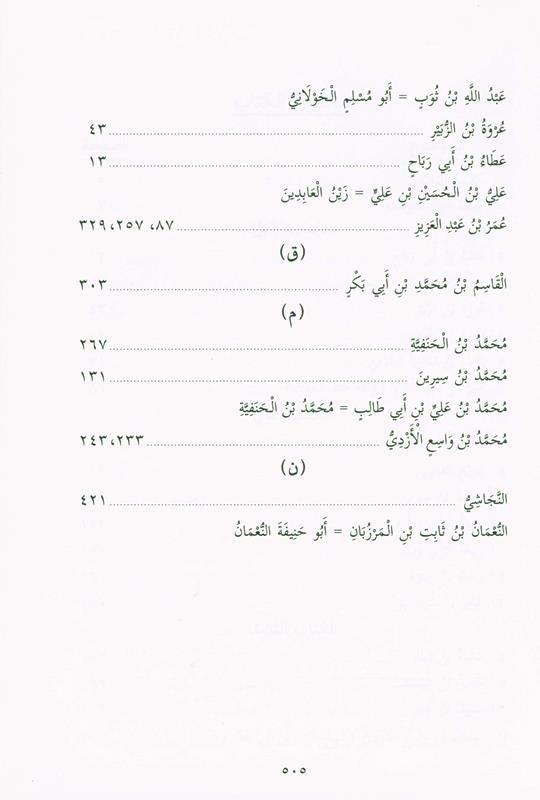 عَبْدُ اللَّهِ بْنُ ثُوَبٍ = أَبُو مُسْلِمٍ الْخَوْلَانِيُّ
عُرْوَةُ بْنُ الزُّبَيْرِ ........ ٤٣
عَطَاءُ بْنُ أَبِي رَبَاحٍ ........ ١٣
عَلِيُّ بْنُ الْحُسَيْنِ بْنِ عَلِيٍّ = زَيْنُ الْعَابِدِينَ
عُمَرُ بْنُ عَبْدِ الْعَزِيزِ ........ ٨٧، ٢٥٧، ٣٢٩
(ق)
الْقَاسِمُ بْنُ مُحَمَّدِ بْنِ أَبِي بَكْرٍ ........ ٣٠٣
(م)
مُحَمَّدُ بْنُ الْحَنَفِيَّةِ ........ ٢٦٧
مُحَمَّدُ بْنُ سِيرِينَ ........ ١٣١
مُحَمَّدُ بْنُ عَلِيِّ بْنِ أَبِي طَالِبٍ = مُحَمَّدُ بْنُ الْحَنَفِيَّةِ
مُحَمَّدُ بْنُ وَاسِعٍ الْأَزْدِيُّ ........ ٢٣٣، ٢٤٣
(ن)
النَّجَاشِيُّ ........ ٤٢١
النُّعْمَانُ بْنُ ثَابِتِ بْنِ الْمَرْزُبَانِ = أَبُو حَنِيفَةَ النُّعْمَانُ
٥٠٥